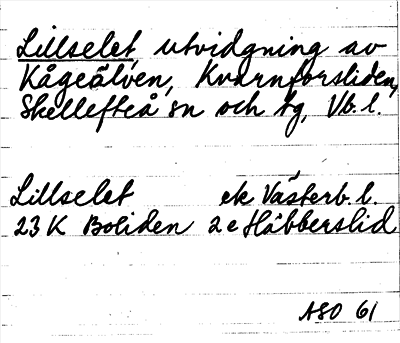 Lillselet, utvidgning av
Kågeälven, Kvarnforsliden,
Skellefteå sn och tg, Vb. l.
Lillselet ek Västerb. l.
23 K Boliden 2 e Häbberslid
ASO 61